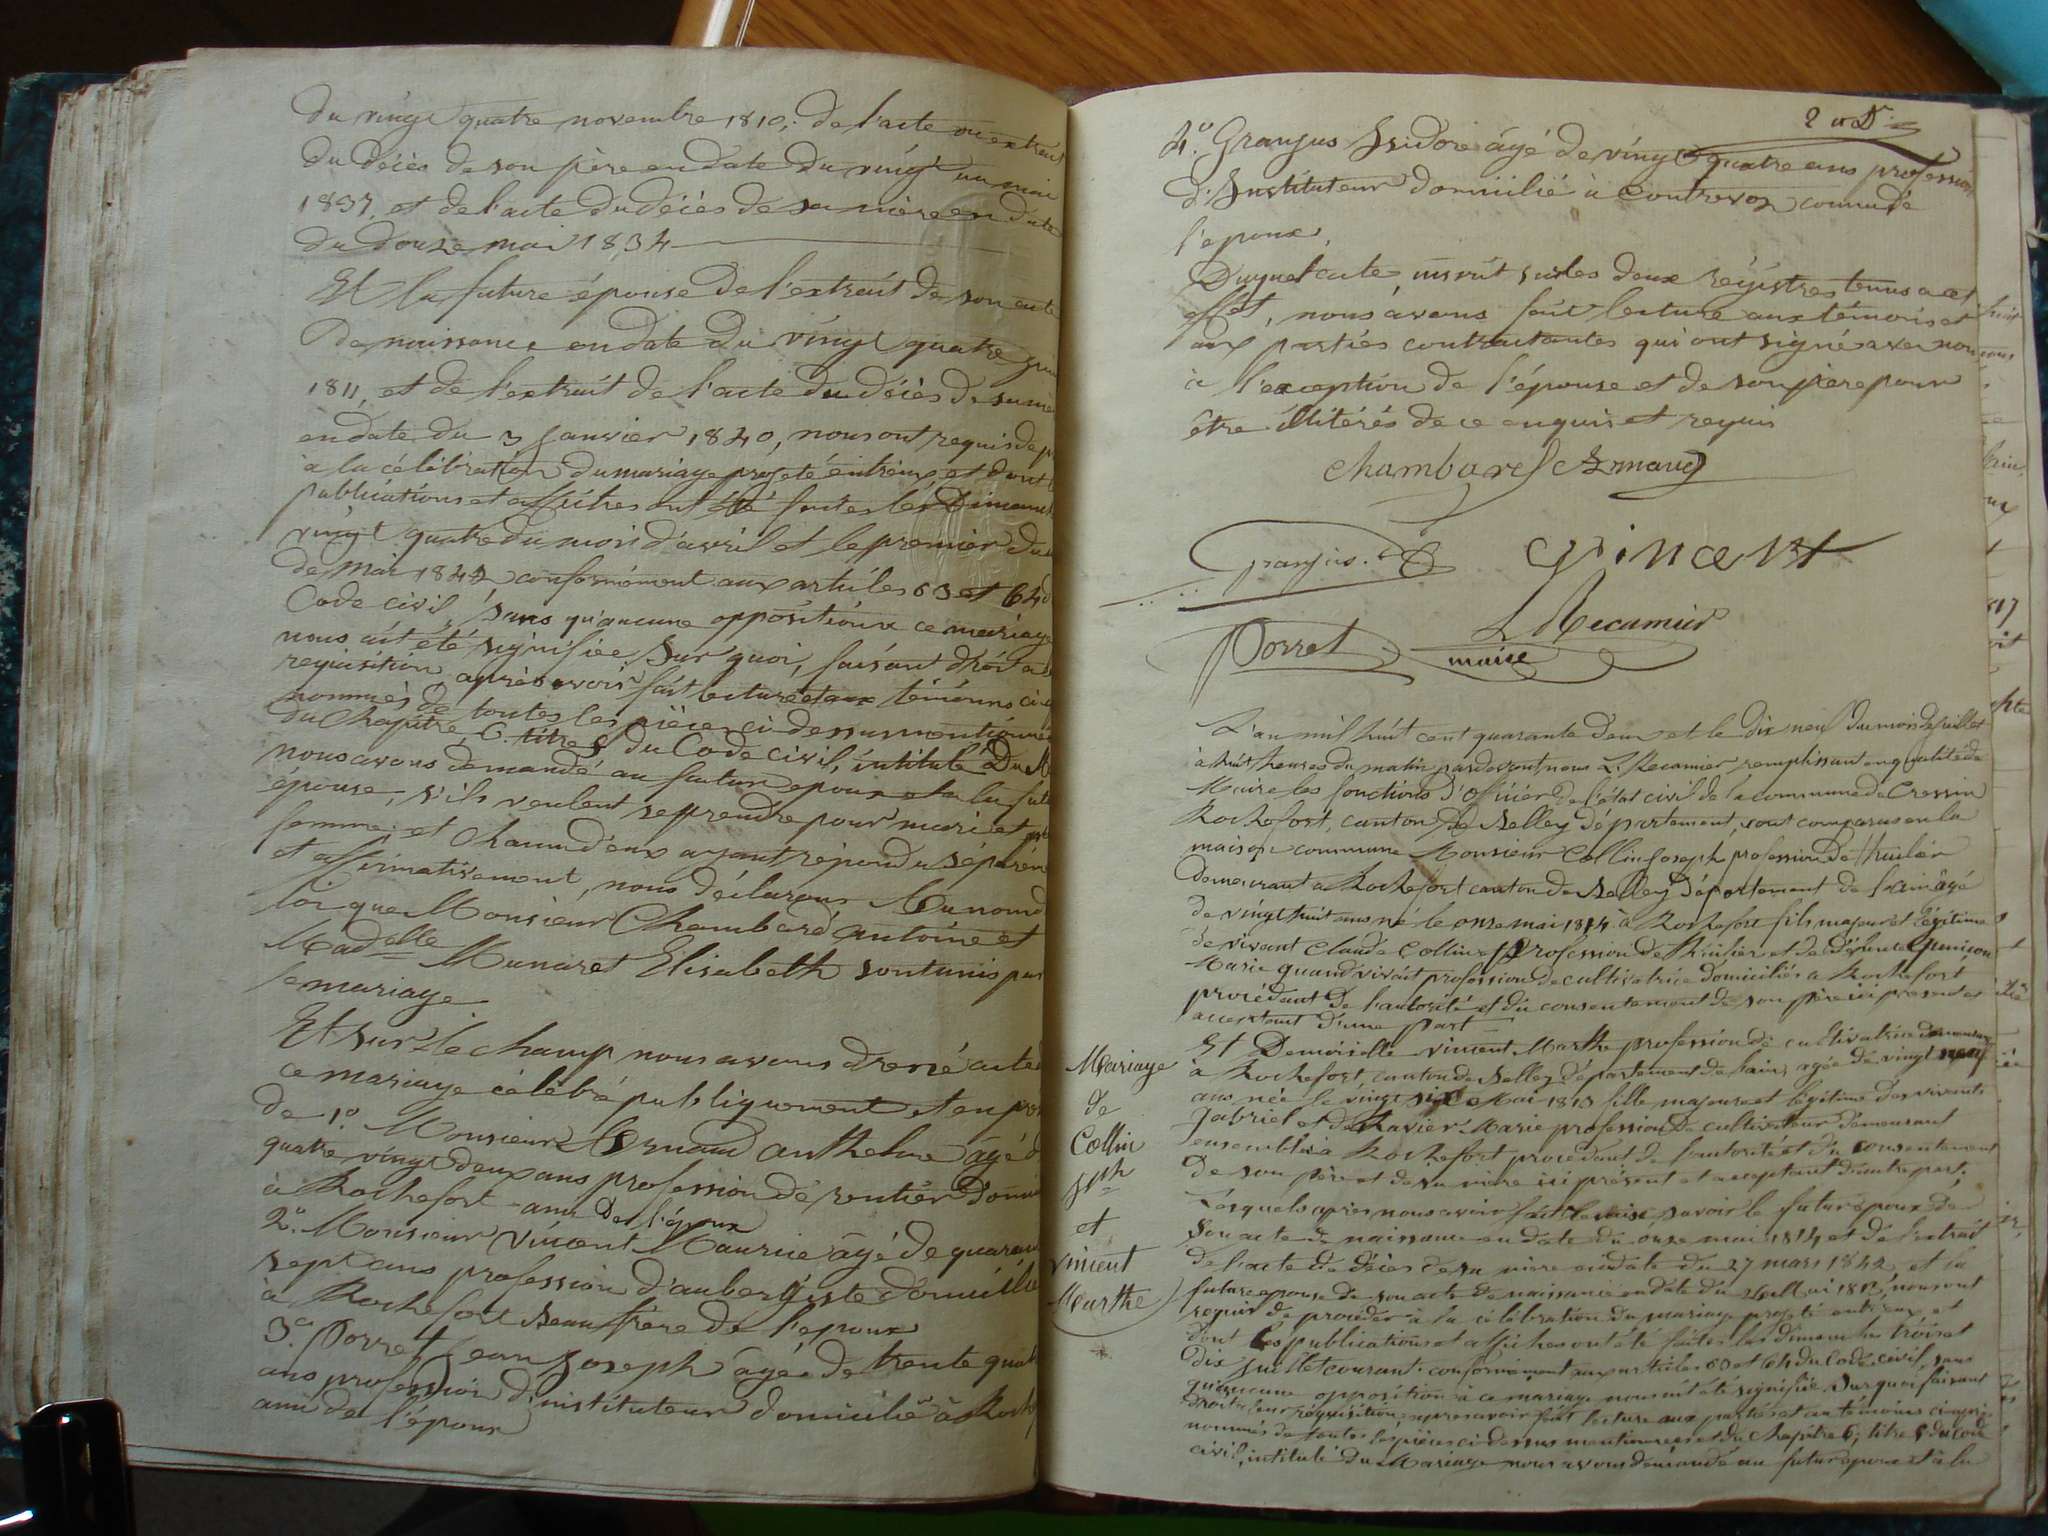 du vingt quatre novembre 1810, de l'acte ou extrait
du décès de son père en date du vingt un mai
1837, et de l'acte du décès de sa mère en date
du douze mai 1834
Et la future épouse de l'extrait de son acte
de naissance en date du vingt quatre
1811, et de l'extrait de l'acte du décès de sa mè
en date du 3 Janvier 1840, nous ont requis de p
à la célébration du mariage projeté entr'eux et dont
publications et affiches ont été faites les Dimanch
vingt quatre du mois d'avril et le premier du
de mai 1842, conformément aux articles 63 et 64 d
Code civil, sans qu'aucune opposition à ce mariage
nous ait été signifiée Sur quoi, faisant droit à
requisition après avoir fait lecture et aux témoins ci
nommés de toutes les pièces ci dessus mentionnée
du Chapitre 6. titre 5 du Code civil, intitulé Du M
nous avons demandé au futur epoux et à la futu
épouse, s'ils veulent se prendre pour mari et pour
femme; et chacun d'eux ayant répondu séparém
et affirmativement, nous déclarons Au nom d
loi que Monsieur Chambard antoine et
Madelle Munaret Elisabeth sont unis par
le mariage
Et sur le champ nous avons dressé acte d
ce mariage célébré publiquement et en pré
de 1º Monsieur Armand anthelme âgé d
quatre vingt deux ans profession de rentier domic
à Rochefort ami de l'époux
2º. Monsieur Vincent Maurice âgé de quarante
sept ans profession d'aubergiste domicilié
à Rochefort Beau frère de l'epoux
3º. Porret Jean Joseph âgé de trente quatr
ans profession d'instituteur domicilié à Roch
ami de l'époux
4º. Granjus Isidore âgé de vingt quatre ans profession
d'Instituteur domicilié à Contrevoz connu de
l'epoux.
Duquel acte, inscrit sur les deux régistres tenus a cet
effet, nous avons fait lecture aux témoins et
aux parties contractantes qui ont signé avec nous
à l'exception de l'épouse et de son père pour
être illitérés de ce enquis et requis
Chambard Armand
Granjus Vincent
Porret L Recamier
maire
L'an mil huit cent quarante deux et le dix neuf du mois de juillet
à huit heures du matin pardevant nous L. Recamier remplissant en qualité de
Maire les fonctions d'Officier de l'état civil de la commune de Cressin
Rochefort, canton de Belley département, sont comparus en la
maison commune Monsieur Collin Joseph profession de
demeurant à Rochefort canton de Belley département de l'ain âgé
de vingt huit ans né le onze mai 1814 à Rochefort fils majeur et légitime
de vivant Claude Collin profession de et de défunte
Marie quand vivait profession de cultivatrice domiciliés a Rochefort
procédant de l'autorité et du consentement de son père ici present et
acceptant d'une part
Et Demoiselle Vincent Marthe profession de cultivatrice demeurant
à Rochefort, canton de Belley département de l'ain, agée de vingt neuf
ans née le vingt six Mai 1813 fille majeure et légitime des vivants
Gabriel et de Ravier Marie profession de cultivateur demeurant
ensemble à Rochefort procedant de l'autorité et du consentement
de son père et de sa mère ici présent et acceptant d'autre part;
Lesquels après nous avoir fait remise savoir le futur époux de
son acte de naissance en date du onze mai 1814 et de l'extrait
de l'acte de décès de sa mère en date du 27 mars 1842 et la
future epouse de son acte de naissance en date du 26 Mai 1813, nous ont
requis de procéder à la célébration du mariage projeté entr'eux et
dont les publications et affiches ont été faites les dimanches trois et
dix Juillet courant conformément aux articles 63 et 64 du Code civil, sans
qu'aucune opposition à ce mariage nous ait été signifiée Sur quoi faisant
droit à leur réquisition, après avoir fait lecture aux parties et au témoins ci après
nommés de toutes les pièces ci dessus mentionnées et du chapitre 6, titre 5 du Code
civil, intitulé Du Mariage nous avons demandé au futur époux et à la
Mariage
de
Collin
jph
et
Vincent
Marthe